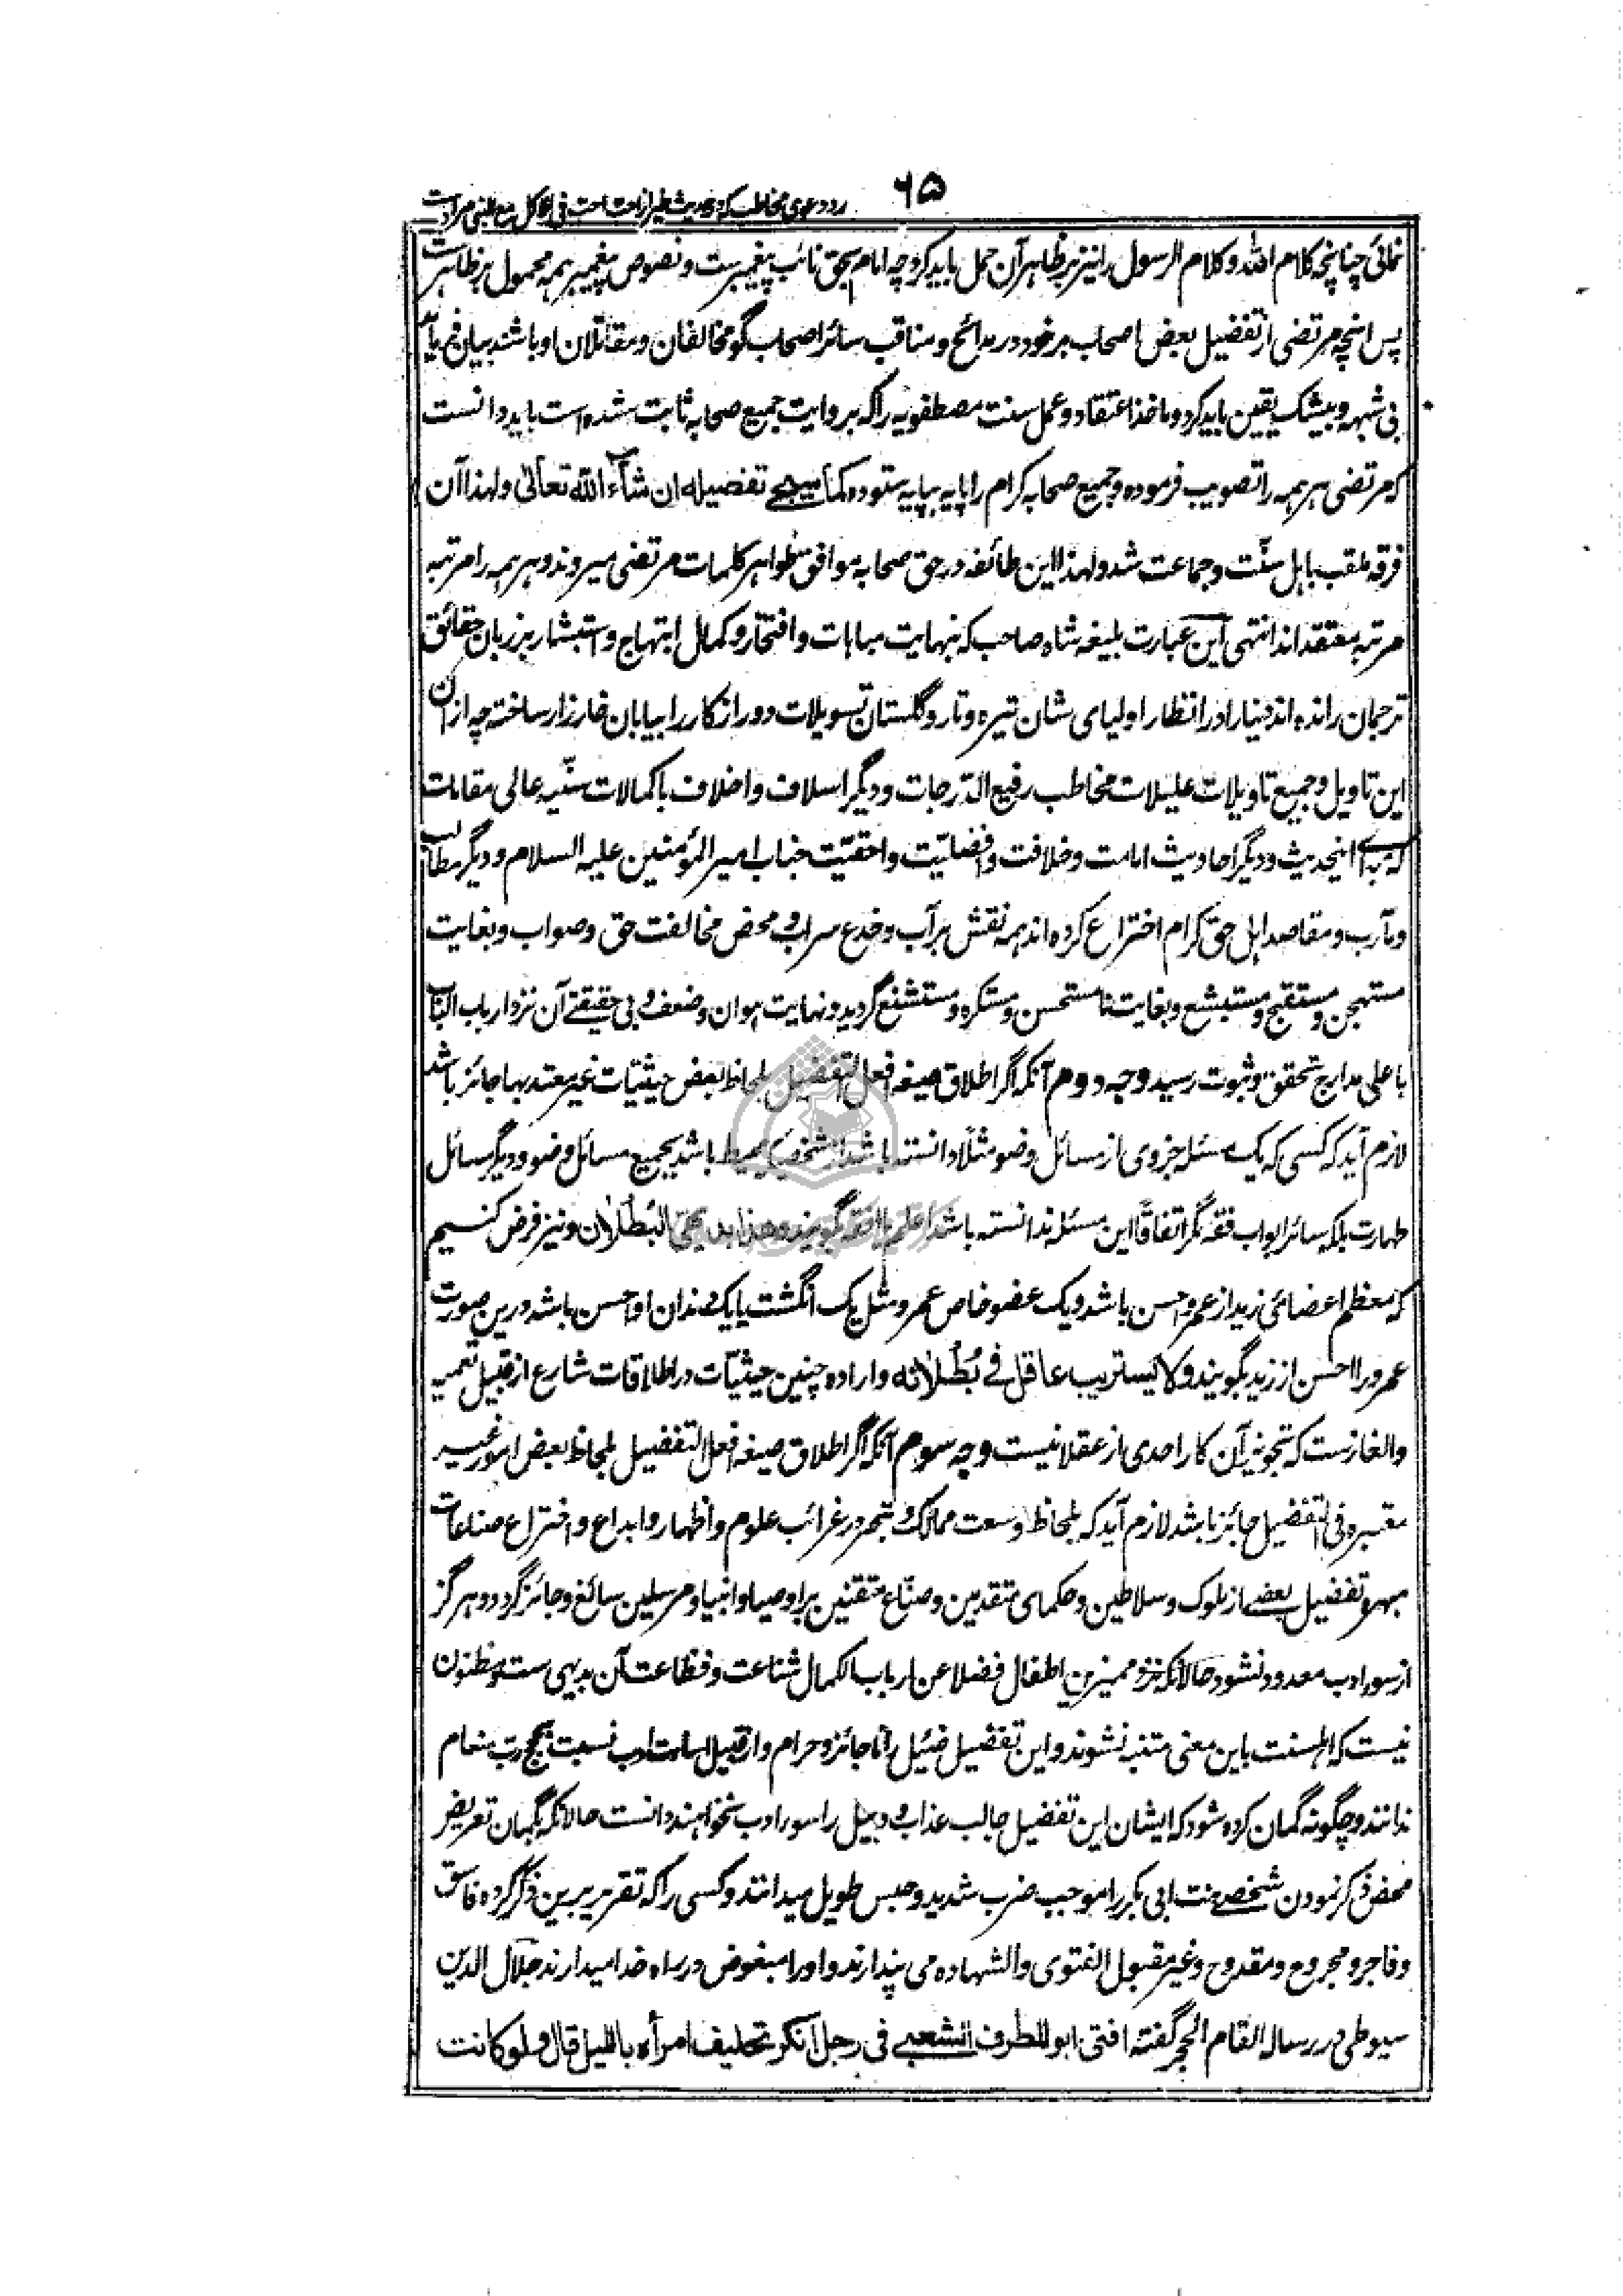 ۶۵
رد دعوی مخاطب که در حدیث طیر از احب احب فی الاکل مع النبی مرادست
نمائی چنانچه کلام الله و کلام الرسول را نیز بر ظاهر آن حمل باید کرد چه امام بحق نائب پیغمبرست و نصوص پیغمبر همه محمول بر ظاهرست
پس انچه مرتضی از تفضیل بعض اصحاب بر خود در مدائح و مناقب سائر اصحاب گو مخالفان و مقاتلان او باشند بیان فرماید
بی شبهه و بیشک یقین باید کرد و ماخذ اعتقاد و عمل سنت مصطفویه را که بروایت جمیع صحابه ثابت شده است باید دانست
که مرتضی هر همه را تصویب فرموده و جمیع صحابه کرام را پایه بپایه ستوده کما سیجے تفصیله ان شاء الله تعالی و لهذا آن
فرقه ملقب باهل سنّت و جماعت شد و لهذا این طائفه در حق صحابه موافق ظواهر کلمات مرتضی میروند و هر همه را مرتبه
مرتبه معتقداند انتهی این عبارت بلیغه شاه صاحب که بنهایت مباهات و افتخار و کمال ابتهاج و استبشار بر زبان حقائق
ترجمان رانده اند دنیا را در انظار اولیای شان تیره و تار و گلستان تسویلات دور از کار را بیابان خارزار ساخته چه ازان
این تاویل و جمیع تاویلات علیلات مخاطب رفیع الدّرجات و دیگر اسلاف و اخلاف با کمالات سنّیه عالی مقامات
که برای اینحدیث و دیگر احادیث امامت و خلافت و افضلیّت و احقیّت جناب امیر المؤمنین علیه السلام و دیگر مطالب
و مآرب و مقاصد اهل حق کرام اختراع کرده اند همه نقش بر آب و خدع سراب و محض مخالفت حق و صواب و بغایت
مستهجن و مستقبح و مستبشع و بغایت نامستحسن و مستکره و مستشنع گردید و نهایت هوان و ضعف و بی حقیقتے آن نزد ارباب الباب
باعلی مدارج تحقق و ثبوت رسید وجه دوم آنکه اگر اطلاق صیغه افعل التفضیل بلحاظ بعض حیثیّات غیر معتد بها جائز باشد
لازم آید که کسی که یک مسئله جزوی از مسائل وضو مثلًا دانسته باشد از شخصیکه محیط باشد بجمیع مسائل وضو و دیگر مسائل
طهارت بلکه سائر ابواب فقه مگر اتفاقًا این مسئله ندانسته باشد اعلم بالفقه گویند و هذا بدیهی البُطلان و نیز فرض کنیم
که معظم اعضائی زید از عمرو احسن باشد و یک عضو خاص عمرو مثل یک انگشت یا یک دندان او احسن باشد درین صورت
عمرو را احسن از زید بگویند و لا یستریب عاقل فے بُطلانه و اراده چنین حیثیّات در اطلاقات شارع از قبیل تعمیه
و الغازست که تجویز آن کار احدی از عقلا نیست وجه سوم آنکه اگر اطلاق صیغه افعل التفضیل بلحاظ بعض امور غیر
معتبره فی التفضیل جائز باشد لازم آید که بلحاظ وسعت ممالک و تبحر در غرائب علوم و اظهار و ابداع و اختراع صناعات
مبهره تفضیل بعضے از ملوک و سلاطین و حکمای متقدمین و صنّاع متقنین بر اوصیا و انبیا و مرسلین سائغ و جائز گردد و هرگز
از سور ادب معدود نشود حالانکه نزد ممیزین اطفال فضلا عن ارباب الکمال شناعت و فظاعت آن بدیهی ست و مظنون
نیست که اهلسنت باین معنی متنبه نشوند و این تفضیل ضئیل را ناجائز و حرام و از قبیل اساءت ادب نسبت بحجج رب منعام
ندانند و چگونه گمان کرده شود که ایشان این تفضیل جالب عذاب وبیل را سور ادب نخواهند دانست حالانکه بگمان تعریض
محض ذکر نمودن شخصے بنت ابی بکر را موجب ضرب شدید و حبس طویل میدانند و کسی را که تقریر برین ذکر کرده فاسق
و فاجر و مجروح و مقدوح و غیر مقبول الفتوی و الشهاده می پندارند و او را مبغوض در راه خدا میدارند جلال الدین
سیوطی در رساله القام الحجر گفته افتی ابو المطرف الشعبے فی رجل انکر تحلیف امرأه باللیل قال و لو کانت